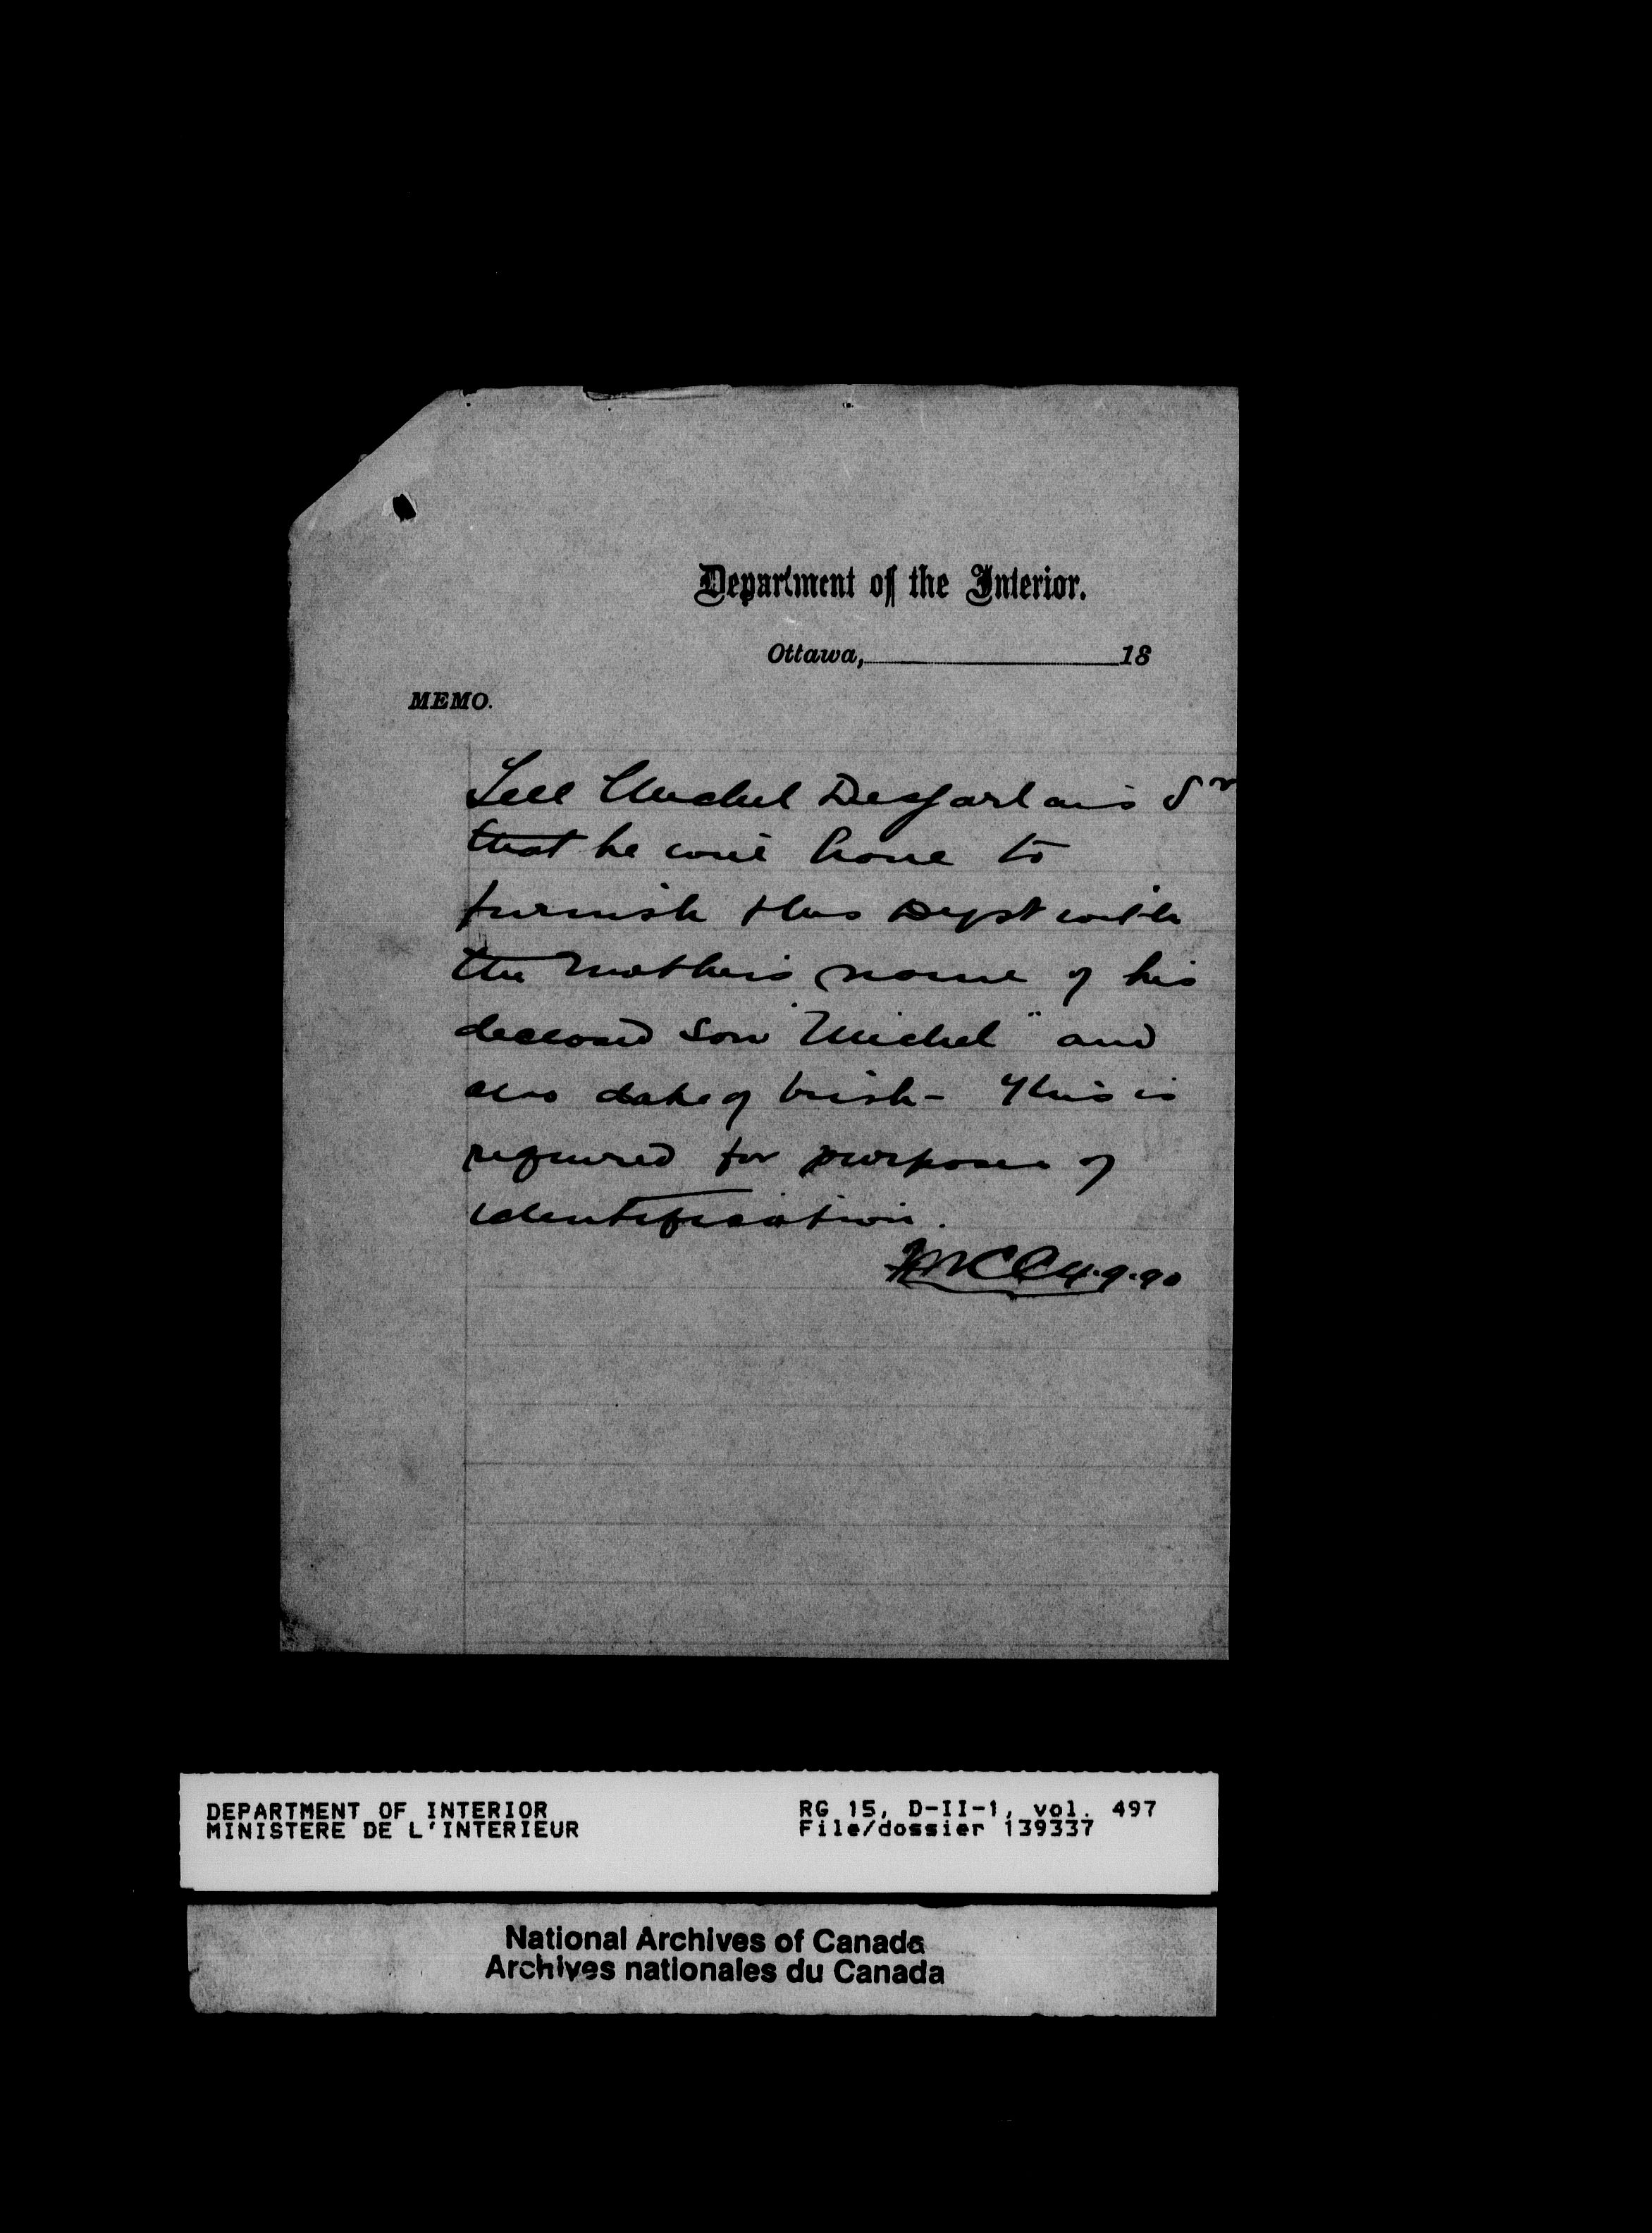 Department of the Interior.
Ottawa, 18
MEMO.
Tell Michel Desjarlais Sr
that he will have to
furnish this Dept with
the Mother's name of his
deceased son "Michel" and
also date of birth - This is
required for purposes of
identification.
4.9.90
DEPARTMENT OF INTERIOR
MINISTERE DE L'INTERIEUR
RG 15, D-II-1, vol. 497
File/dossier 139337
National Archives of Canada
Archives nationales du Canada